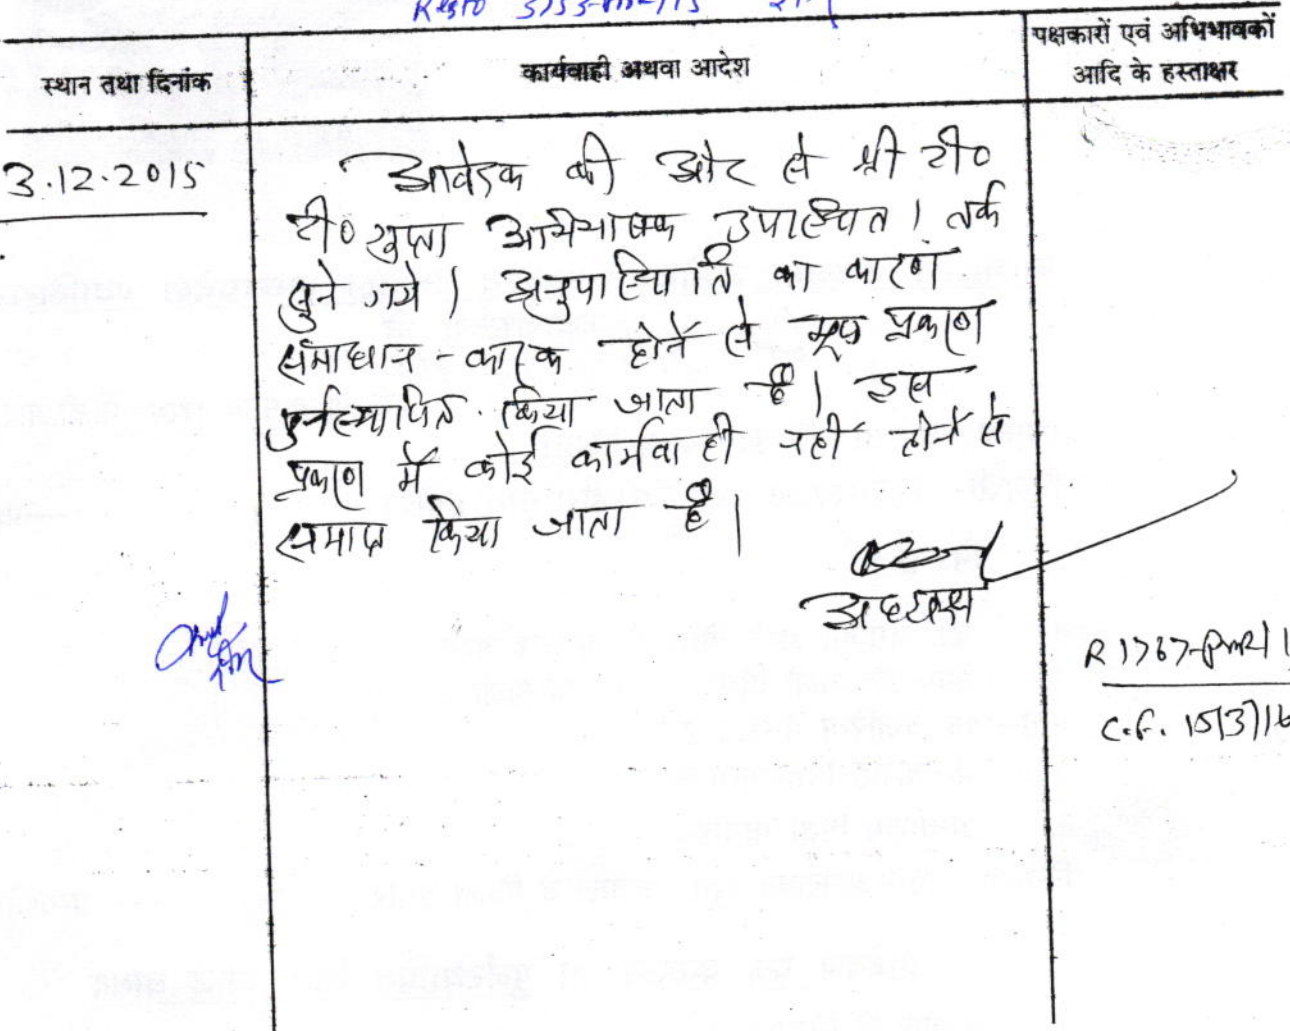 स्थान तथा दिनांक
कार्यवाही अथवा आदेश
पक्षकारों एवं अभिभावकों
आदि के हस्ताक्षर
3.12.2015
आवेदक की ओर से श्री टी०
टी० गुप्ता अभिभाषक उपस्थित। तर्क
सुने गये। अनुपस्थिति का कारण
समाधान-कारक होने से मूल प्रकरण
पुर्नस्थापित किया जाता है। इस
प्रकरण में कोई कार्यवाही नहीं होने से
समाप्त किया जाता है।
अध्यक्ष
R 1767-
C.F. 15/3/16